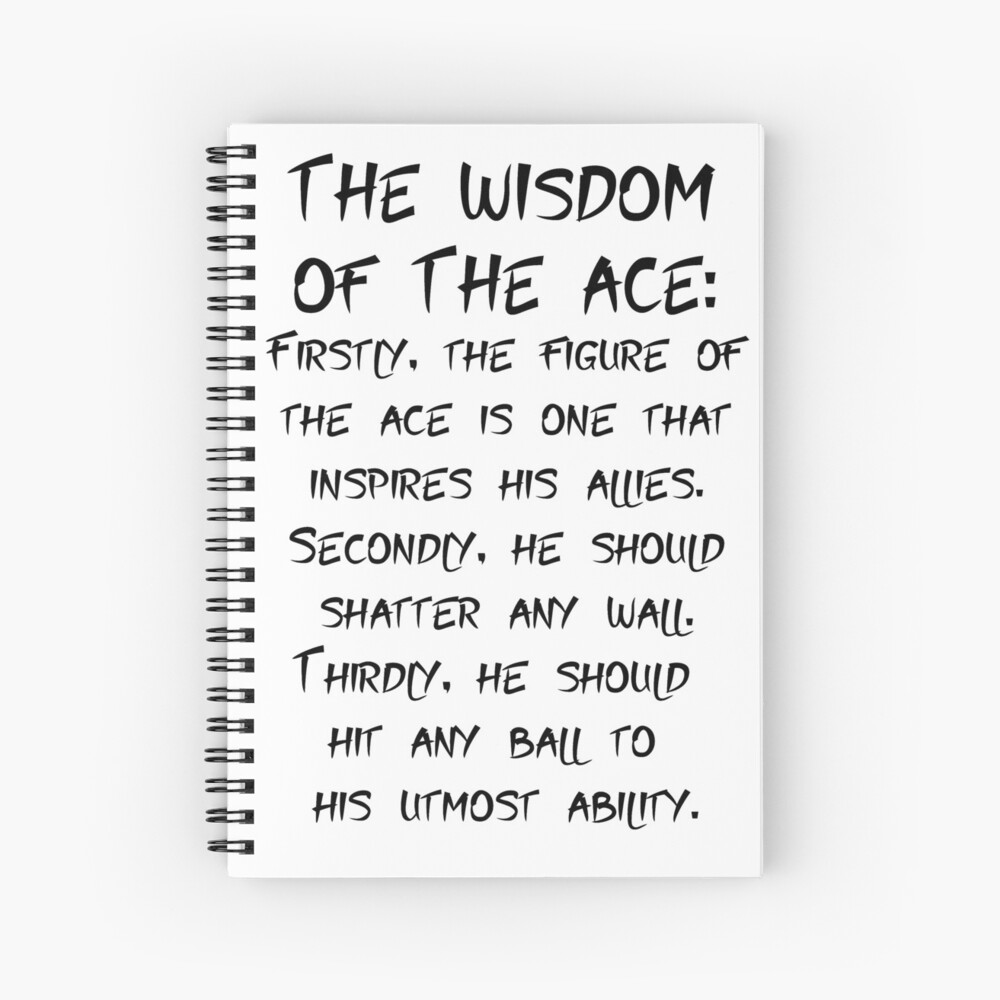 The wisdom
of the ace:
Firstly, the figure of
the ace is one that
inspires his allies.
Secondly, he should
shatter any wall.
Thirdly, he should
hit any ball to
his utmost ability.